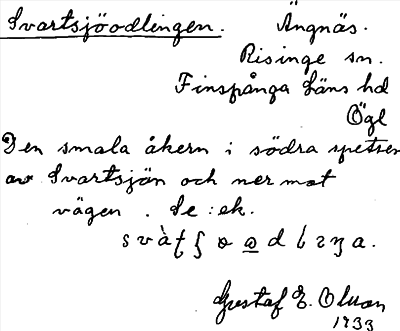 Svartsjöodlingen. Ängnäs.
Risinge sn.
Finspånga läns hd
Ögl
Den smala åkern i södra spetsen
av Svartsjön och ner mot
vägen. Se : ek.
Gustaf E. Olsson
1933